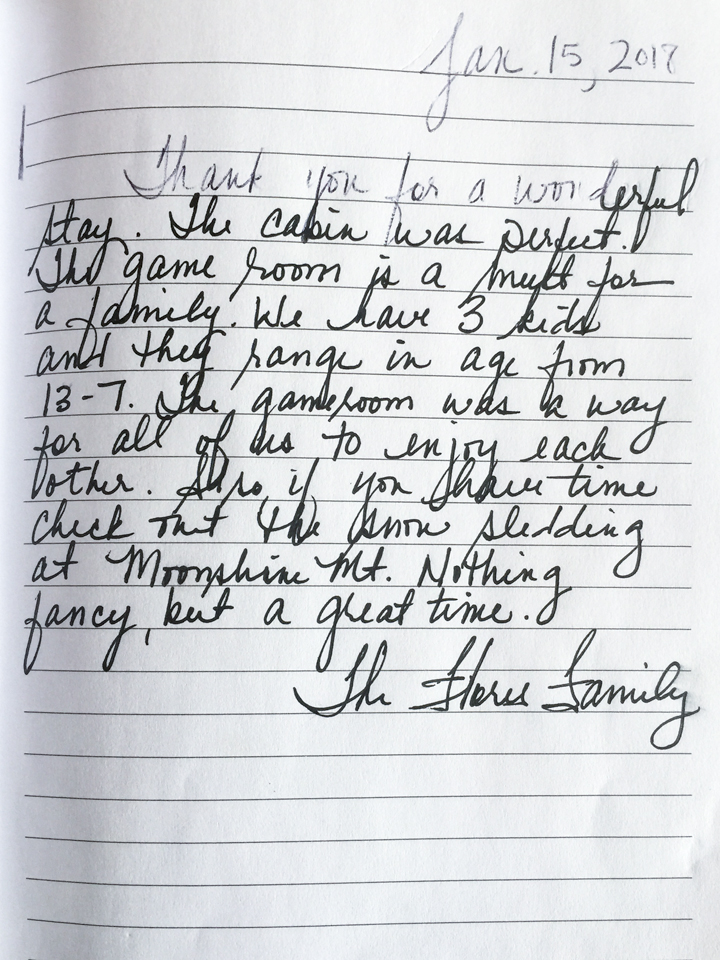 Jan. 15, 2018
Thank you for a wonderful
stay. The cabin was perfect.
The game room is a must for
a family. We have 3 kids
and they range in age from
13-7. The gameroom was a way
for all of us to enjoy each
other. Also, if you have time
check out the snow sledding
at Moonshine Mt. Nothing
fancy, but a great time.
The Flores Family